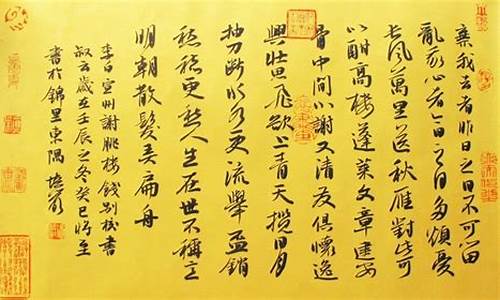 棄我去者昨日之日不可留
亂我心者今日之日多煩憂
长風萬里送秋雁對此可
以酣高樓蓬萊文章建安
骨中間小謝又清发俱懷逸
興壯思飛欲上青天攬日月
抽刀断水水更流舉盃銷
愁愁更愁人生在世不稱意
明朝散髮弄扁舟
李白宣州謝朓樓餞别校書
叔云歲在壬辰之冬癸巳將至
書於錦里東隅